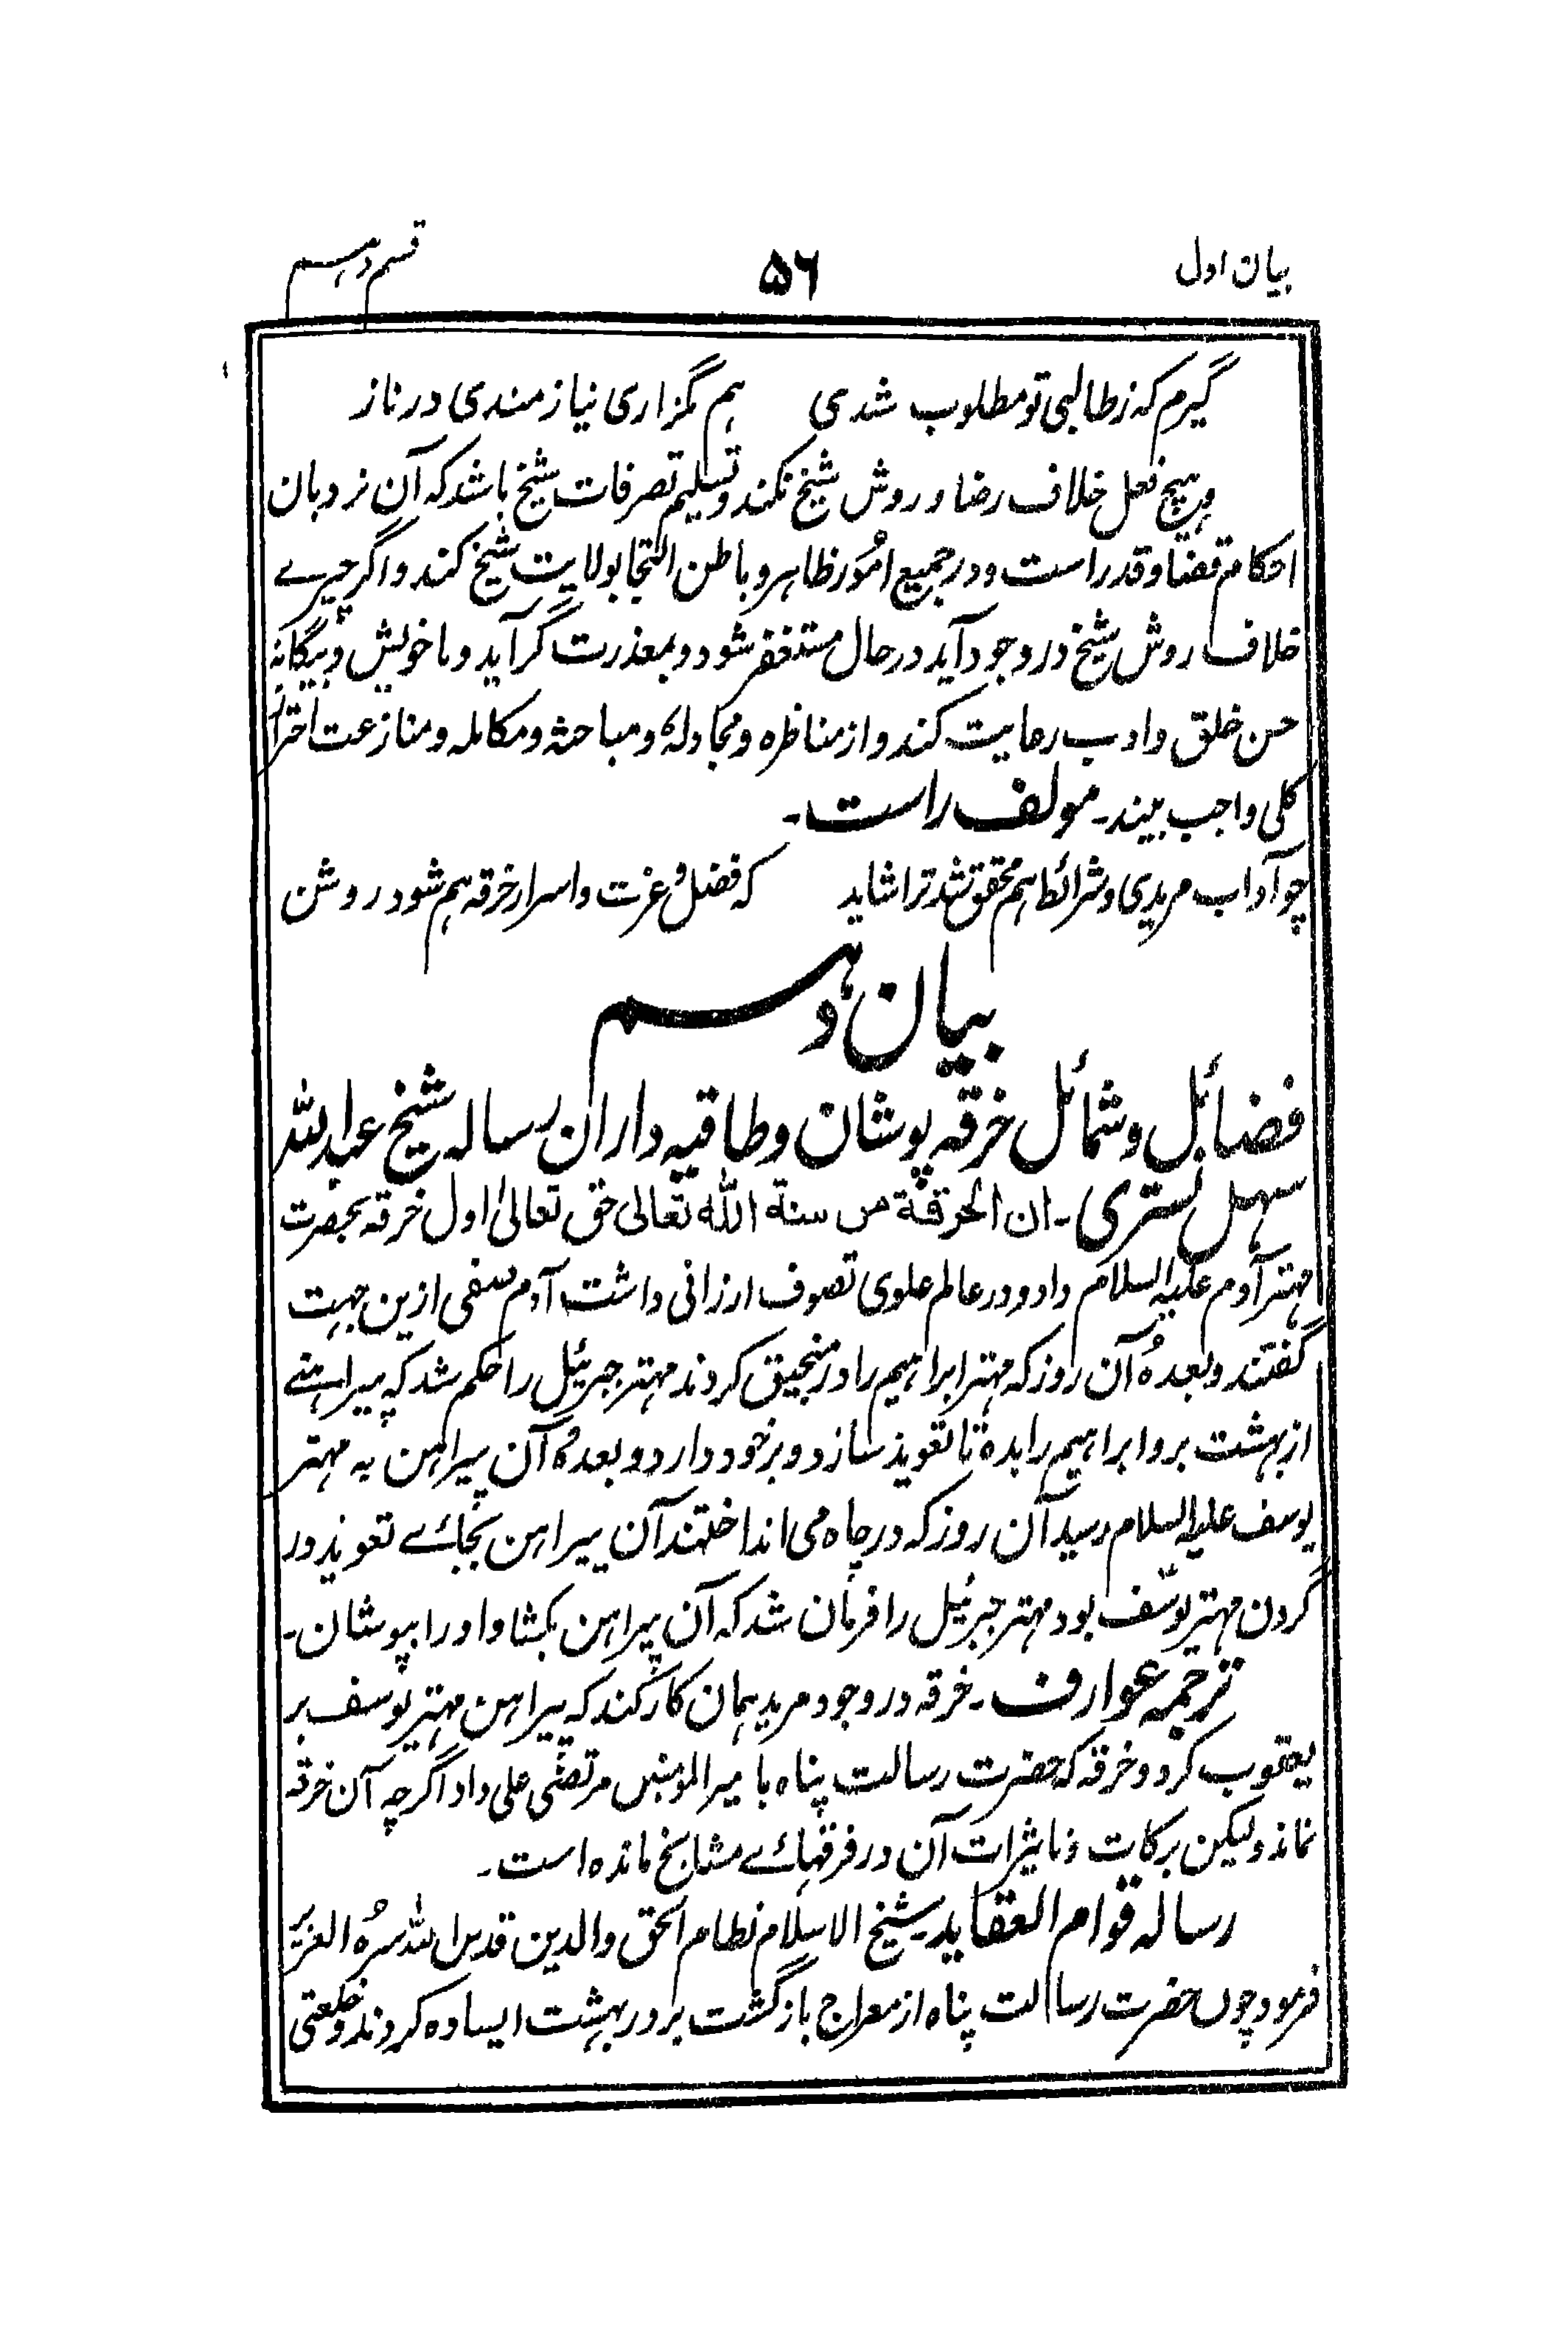 بیان اول ۵۶ قسم دهم
گیرم که ز طالبی تو مطلوب شدی هم نگزاری نیازمندی در ناز
وہیچ فعل خلاف رضا و روش شیخ نکند و تسلیم تصرفات شیخ باشد که آن نردبان
احکام قضا و قدر است و در جمیع امُور ظاہر و باطن التجا بولایت شیخ کند و اگر چیزے
خلاف روش شیخ در وجود آید در حال مستغفر شود و بمعذرت گراید و با خویش و بیگانه
حسن خلق و ادب رعایت کند و از مناظره و مجادله و مباحثه و مکابله و منازعت احتراز
کلی واجب بیند۔ مولف راست۔
چو آداب مریدی و شرائط ہم محقق شد ترا شاید که فضل و عزت و اسرار خرقه ہم شود روشن
بیان دہم
فضائل و شمائل خرقه پوشان و طاقیه داران رساله شیخ عبدالله
سہل تستری۔ ان الخرقة من سنة الله تعالی حق تعالیٰ اول خرقه بحضرت
مہتر آدم علیہ السلام داد و در عالم علوی تصوف ارزانی داشت آدم صفی ازین جہت
گفتند و بعدهُ آن روز که مہتر ابراہیم را در منجنیق کردند مہتر جبرئیل را حکم شد که پیراہنے
از بہشت بر و ابراہیم را بده تا تعویذ سازد و بر خود دارد و بعدهُ آن پیراہن به مہتر
یوسف علیہ السلام رسید آن روز که در چاه می انداختند آن پیراہن بجائے تعویذ در
گردن مہتر یوسف بود مہتر جبرئیل را فرمان شد که آن پیراہن بکشا و او را بپوشان۔
ترجمہ عوارف۔ خرقه در وجود مرید ہمان کار کند که پیراہن مہتر یوسف بر
یعقوب کرد و خرقه که حضرت رسالت پناه با میرالمومنین مرتضٰی علی داد اگرچه آن خرقه
نماند ولیکن برکات و تاثیرات آن در فرقہائے مشایخ مانده است۔
رساله قوام العقاید۔ شیخ الاسلام نظام الحق والدین قدس الله سرهُ العزیز
فرمود چوں حضرت رسالت پناه از معراج بازگشت بر در بہشت ایساده کردند و خلعتی